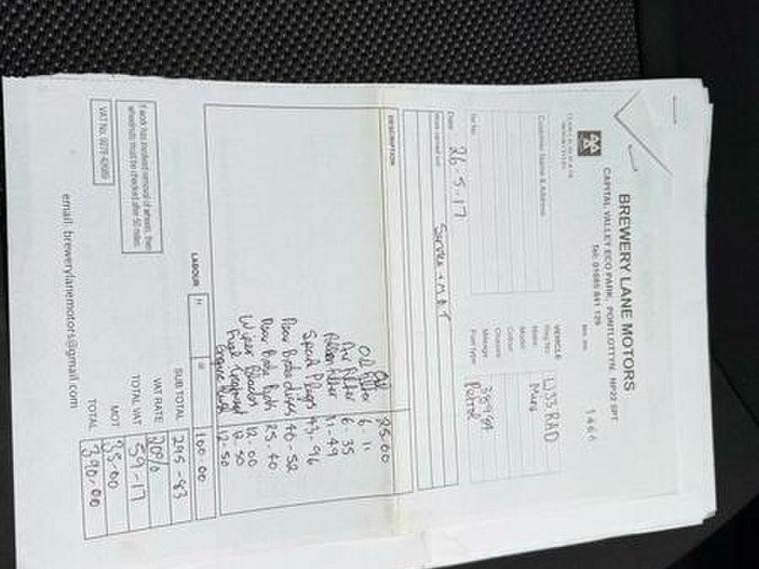 BREWERY LANE MOTORS
CAPITAL VALLEY ECO PARK, PONTLOTTYN. NP22 5PT
Tel: 01685 841 129
1466
Customer Name & Address
VEHICLE
Reg No. W33 RAD
Make Merc
Model
Colour
Chassis
Mileage 38984
Fuel Type Petrol
Date 26-5-17
Work carried out: Service + MOT
DESCRIPTION
Oil 25.00
Oil Filter 6.11
Air Filter 6.35
Pollen Filter 11-49
Spark Plugs 43-96
Rear Brake discs 46-52
Rear Brake Pads 25-40
Wiper Blades 12.00
Fuel Treatment 12.50
Engine Flush 12-50
LABOUR H @ 100.00
SUB TOTAL 295-83
VAT RATE 20%
TOTAL VAT 59-17
MOT 35.00
TOTAL 390.00
If work has involved removal of wheels, then
wheelnuts must be checked after 50 miles.
VAT No.
email: brewerylanemotors@gmail.com